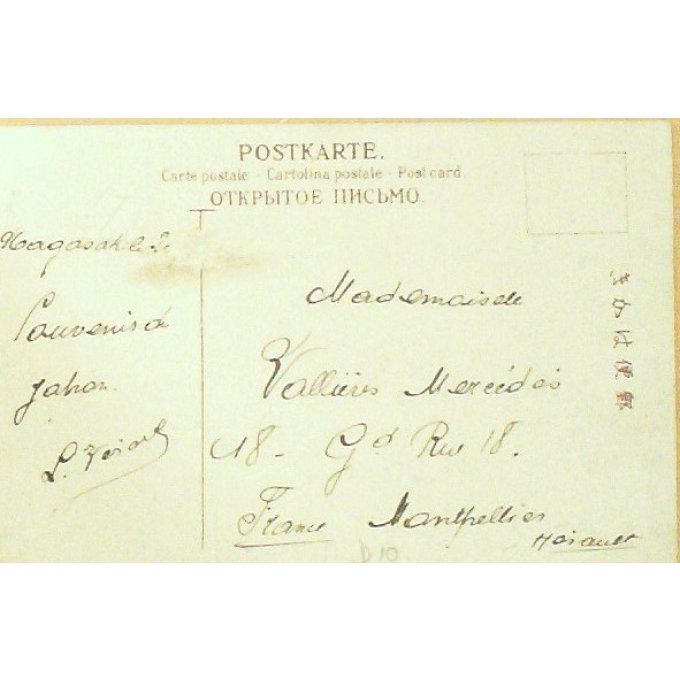 POSTKARTE.
Carte postale - Cartolina postale - Post card.
ОТКРЫТОЕ ПИСЬМО.
郵便はかき
Nagasaki le
Souvenir d
Japon
Mademoiselle
Vallières Mercédès
18 - Gd Rue 18.
France Montpellier
Hérault
D10